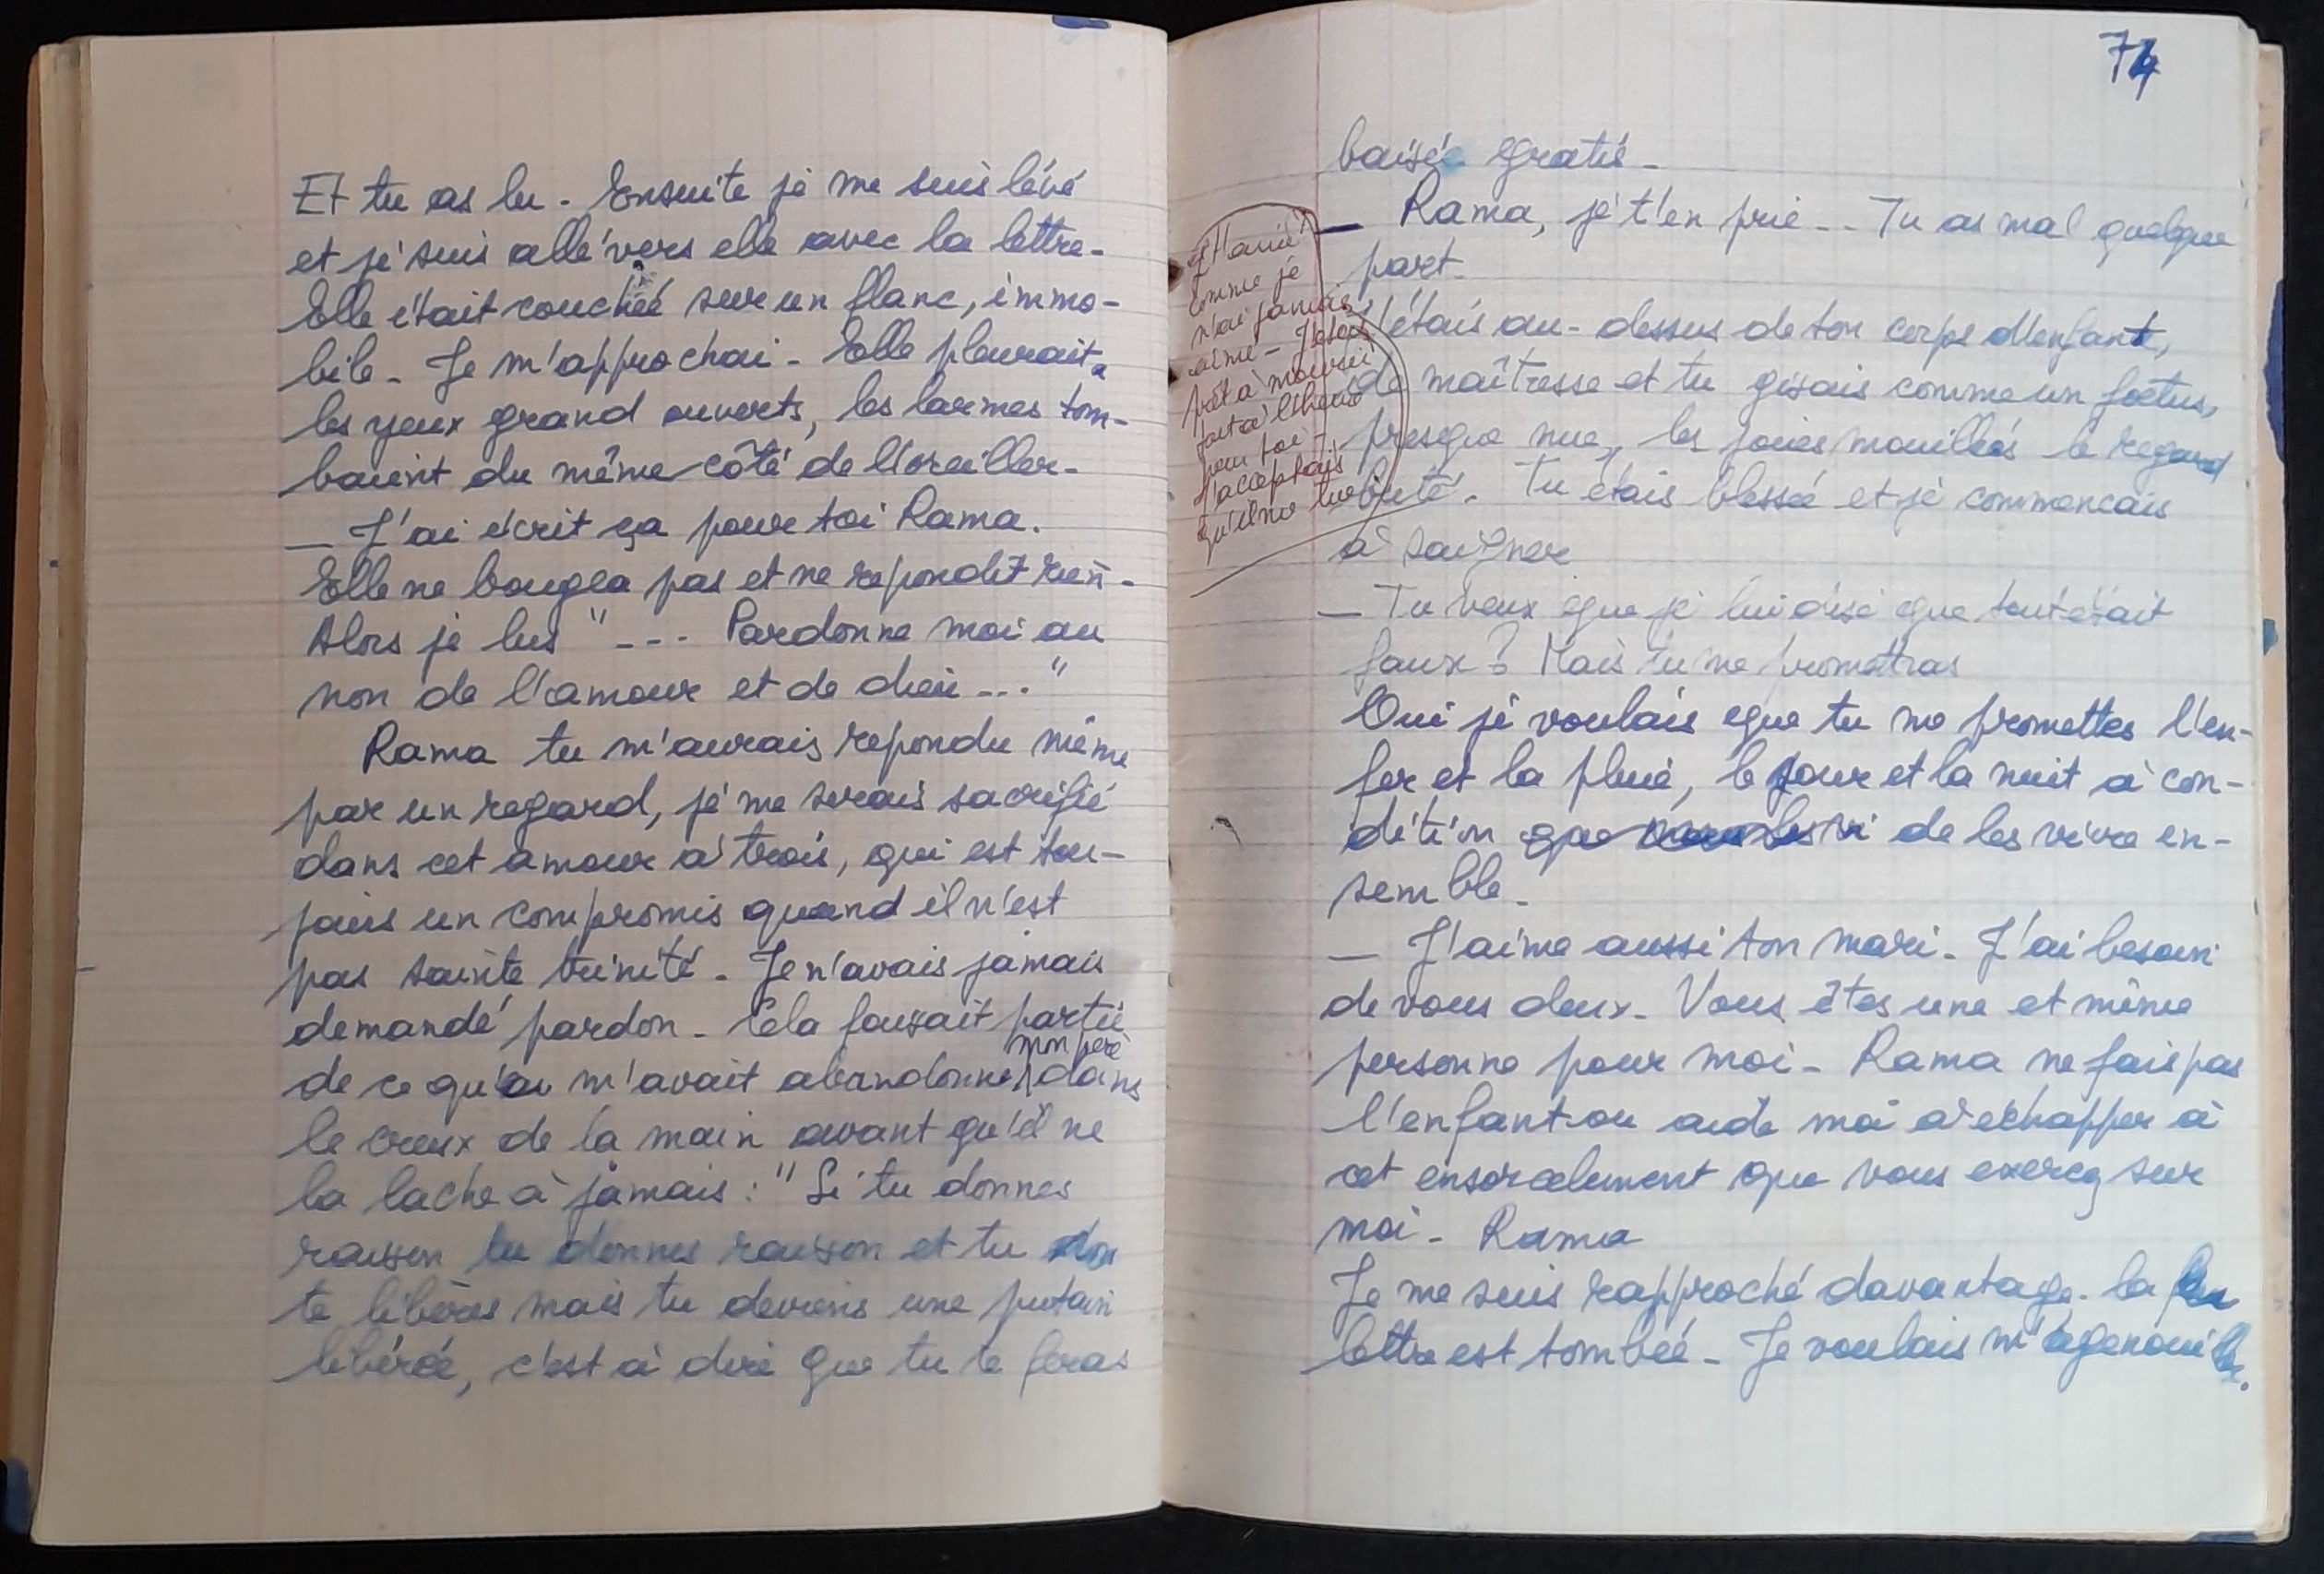 Et tu as lu. Ensuite je me suis lévé
et je suis allé vers elle avec la lettre.
Elle était couchée sur un flanc, immo-
bile. Je m'approchai. Elle pleurait
les yeux grand ouverts, les larmes tom-
baient du même côté de l'oreiller.
— J'ai écrit ça pour toi Rama.
Elle ne bougea pas et ne repondit rien.
Alors je lus "--- Pardonne moi au
non de l'amour et de dieu---"
Rama tu m'aurais repondu même
par un regard, je me serais sacrifié
dans cet amour à trois, qui est tou-
jours un compromis quand il n'est
pas sainte trinité. Je n'avais jamais
demandé pardon. Cela faisait partie
mon père
de ce qu' m'avait abandonné dans
le creux de la main avant qu'il ne
la lache à jamais : "Si tu donnes
raison tu donnes raison et tu don
te libères mais tu deviens une putain
libérée, c'est à dire que tu te feras
74
baisée gratis.
— Rama, je t'en prie -- Tu as mal quelque
part.
J'étais au-dessus de ton corps d'enfant,
de maîtresse et tu gisais comme un foetus,
presque nue, les joues mouillées le regard
buté. Tu étais blessée et je commencais
à saigner
— Tu veux que je lui dise que tout était
faux ? Mais tu me promettras
Oui je voulais que tu me promettes l'en-
fer et la pluie, le jour et la nuit à con-
dition que de les vivre en-
semble.
— J'aime aussi ton mari. J'ai besoin
de vous deux. Vous êtes une et même
personne pour moi. Rama ne fais pas
l'enfant ou aide moi à échapper à
cet ensorcelement que vous exercez sur
moi. Rama
Je me suis rapproché davantage. la
lettre est tombée. Je voulais m'agenouiller.
comme je
n'ai jamais
aimé - J'étais
prêt à mourir
pour toi
J'acceptais
qu'il me tue